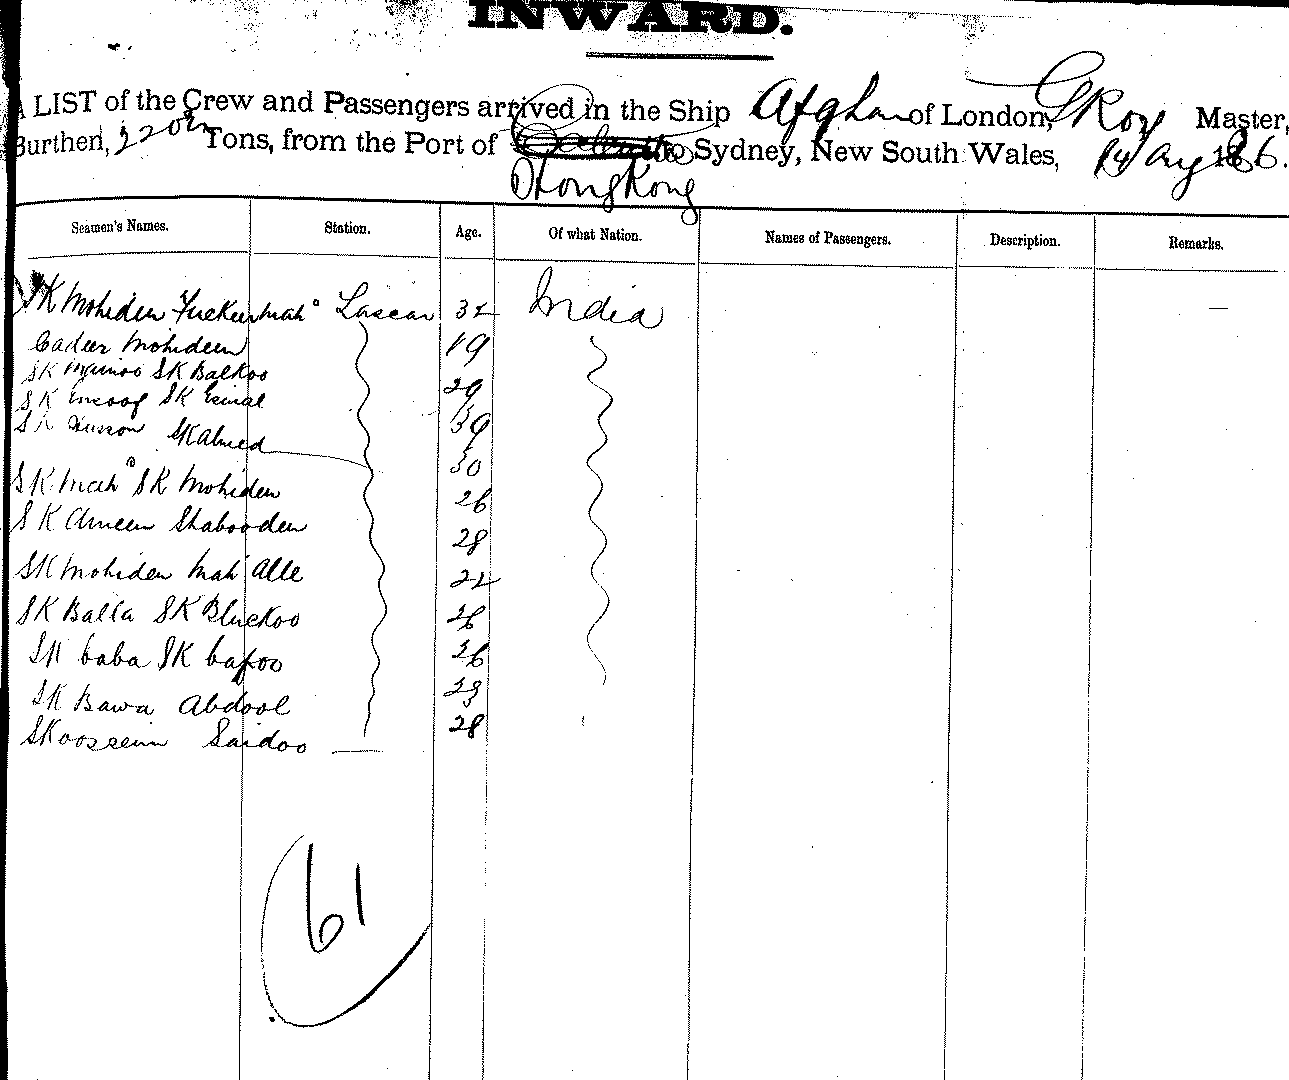 INWARD.
A LIST of the Crew and Passengers arrived in the Ship Afghan of London, G Roy Master,
Burthen, Tons, from the Port of to Sydney, New South Wales, 14 Aug 1886.
HongKong
Seamen's Names. Station. Age. Of what Nation. Names of Passengers. Description. Remarks.
SK Mohiden Mahº Lascar 32 India
Cadeer Mohideen 19
SK SK Balkoo 29
SK SK Esmal 39
SK SK Ahmed 30
SK Mahº SK Mohiden 26
SK Ameen Shabooden 28
SK Mohiden Mah Alle 22
SK Balla SK Bluckoo 26
SK baba SK bapoo 26
SK Bawa Abdool 23
SK oosseem Saidoo 28
61